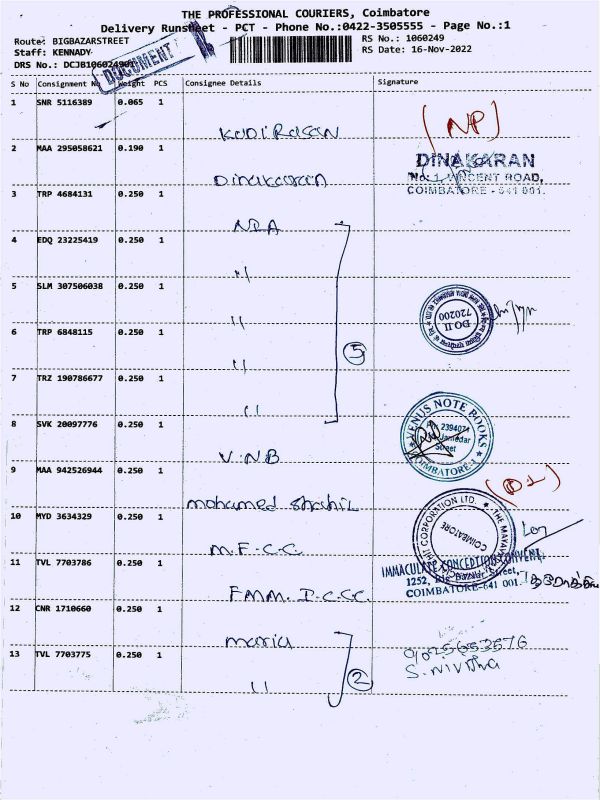 THE PROFESSIONAL COURIERS, Coimbatore
Delivery Runsheet - PCT - Phone No.:0422-3505555 - Page No.:1
Route: BIGBAZARSTREET
RS No.: 1060249
Staff: KENNADY
RS Date: 16-Nov-2022
DRS No.: DCJB1060249
DOCUMENT
S No Consignment No Weight PCS Consignee Details Signature
1 SNR 5116389 0.065 1
KADIRASAN (NP)
2 MAA 295058621 0.190 1
DINAKARAN
No. 1, VINCENT ROAD,
COIMBATORE - 641 001.
Dinakaran
3 TRP 4684131 0.250 1
NDA
4 EDQ 23225419 0.250 1
"
5 SLM 307506038 0.250 1
DO.II
720200
"
6 TRP 6848115 0.250 1
" 5
7 TRZ 190786677 0.250 1
"
8 SVK 20097776 0.250 1
VENUS NOTE BOOKS
2394071
Street
COIMBATORE-1
V.N.B
9 MAA 942526944 0.250 1
(D1)
mohamed Shahil
10 MYD 3634329 0.250 1
CORPORATION LTD.
COIMBATORE
M.F.C.C
11 TVL 7703786 0.250 1
IMMACULATE CONCEPTION CONVENT,
1252, Street,
COIMBATORE-641 001.
FMM. I.C.C.
12 CNR 1710660 0.250 1
maria
9025653576
13 TVL 7703775 0.250 1
S. Nivitha
" 2